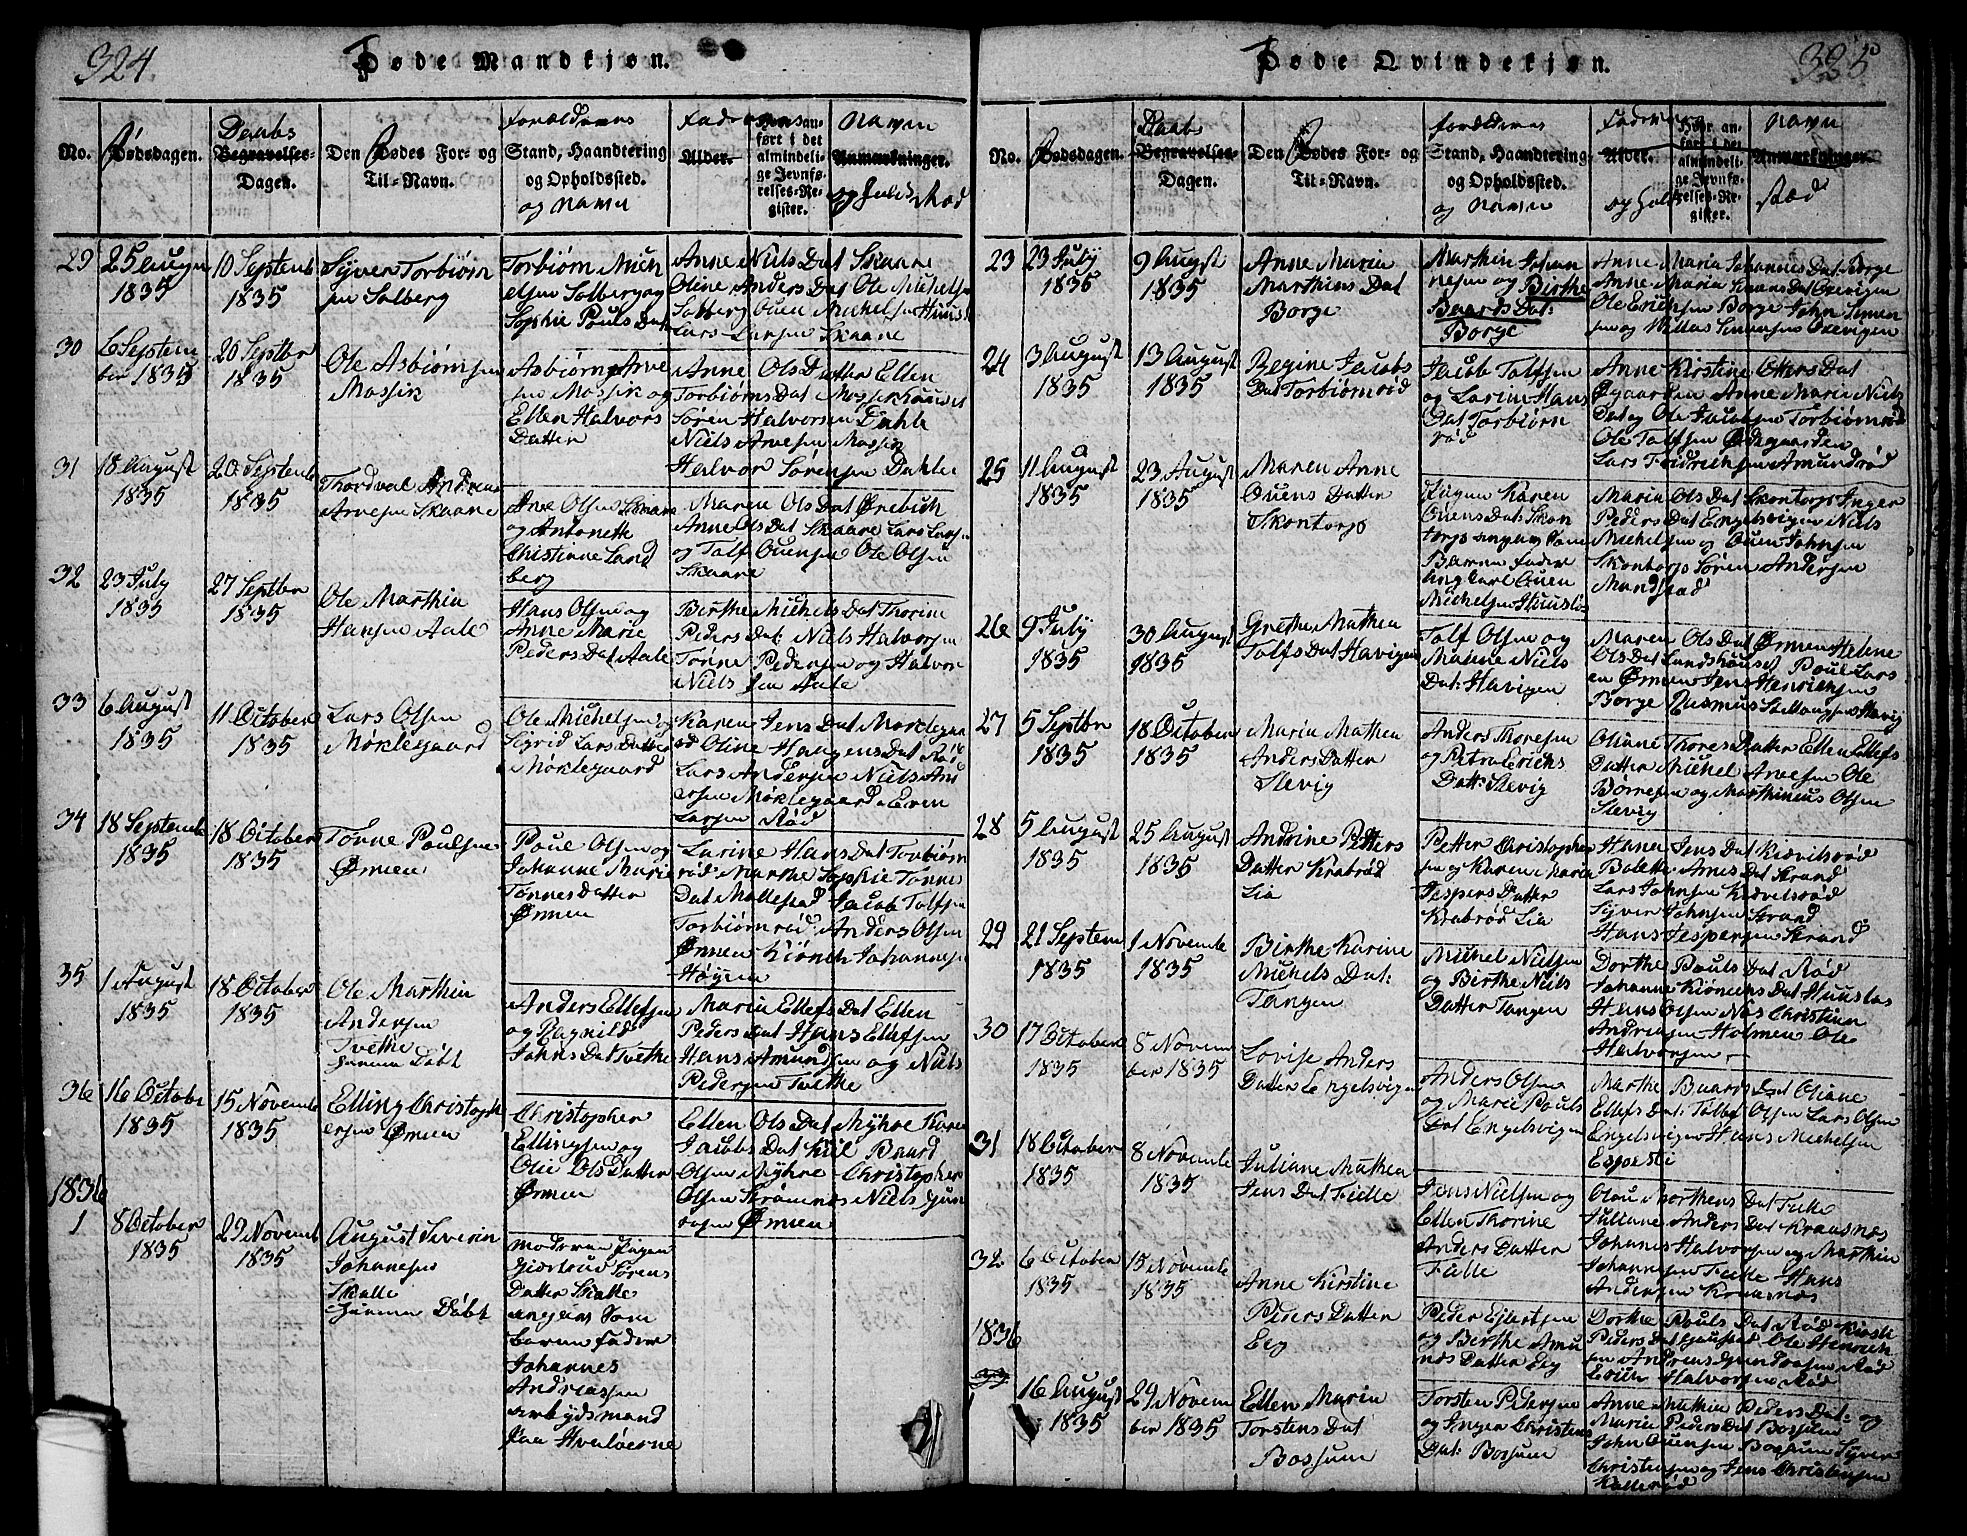 324.
Døde Mandkjøn.
No.
Dødsdagen.
Daabs
Begravelses-
Dagen.
Den Dødes For- og
Til-Navn.
Forældrenes
Stand, Haandtering
og Opholdsted.
og Navn
Faderens
Alder.
Hvor an-
ført i det
almindeli-
ge Jevnfø-
relses-Re-
gister.
Navn
Anmærkninger.
29
25 August
1835
10 Septemb
1835
Syver Torbiørn
sen Solberg
Torbiørn Mich
elsen Solberg og
Sophie Pouls Dat
Anne Niels Dat Skaare
Oline Anders Dat Ole Michelsen
Solberg Ouen Michelsen Huusl
Lars Larsen Skaare
30
6 Septem
ber 1835
20 Septbr
1835
Ole Asbiørnsen
Mossik
Asbiørn Arve
sen Mossik og
Ellen Halvors
Datter
Anne Ols Datter Ellen
Torbiørns Dat Mossikhauset
Søren Halvorsen Dahle
Niels Arvesen Mossik
Halvor Sørensen Dahle
31
18 August
1835
20 Septembe
1835
Thordval Andreas
Arvesen Skaare
Arve Olsen Skaare
og Antonette
Christenne Land
berg
Maren Ols Dat Ørebæch
Anne Ols Dat Skaare Lars Larsen
og Tolf Ouensen Ole Olsen
Skaare
32
23 July
1835
27 Septbr
1835
Ole Marthin
Hansen Aale
Hans Olsen og
Anne Marie
Peders Dat Aale
Birthe Michels Dat Thorine
Peders Dat: Niels Halvorsen
Tønne Pedersen og Halvor
Niels sen Aale
33
6 August
1835
11 October
1835
Lars Olsen
Møklegaard
Ole Michelsen og
Sigrid Lars Datter
Møklegaard
Karen Jens Dat Møklegaa
rd Oline Haagens Dat Rød
Lars Andersen Niels And
ersen Møklegaard Even
Larsen Rød
34
18 Septembe
1835
18 October
1835
Tønne Poulsen
Ørmen
Poul Olsen og
Johanne Marie
Tønnes Datter
Ørmen
Larine Hans Dat Torbiørn
rød Marthe Sophie Tønne
Dat Mollestad Jacob Tolfsen
Torbiørnrød Anders Olsen
Ørmen Kiønich Johannesen
Høyen
35
1 August
1835
18 October
1835
Ole Marthin
Andersen
Tvethe
Hiemme Døbt
Anders Ellefsen
og Ragnild
Johns Dat Tvethe
Maria Ellefs Dat Ellen
Peders Dat Hans Ellefsen
Hans Amundsen og Niels
Pedersen Tvethe
36
16 October
1835
15 Novembe
1835
Elling Christoph
ersen Ørmen
Christopher
Ellingsen og
Olie Ols Datter
Ørmen
Ellen Ols Dat Myhre Karen
Jacobs Dat Kiil Baard
Olsen Myhre Christopher
Olsen Kramnæs Niels Gun
dersen Ørmen
1836
1
8 October
1835
29 Novemb
1835
August Severin
Johannesen
Skalle
Hiemme Døbt
Moderen Pigen
Giertrud Sørens
Datter Skalle
angiver som
Barne fader
Johannes
Andreassen
arbeydsmand
paa Hvaløerne
325
Døde Qvindekjøn.
No.
Dødsdagen.
Daab
Begravelses-
Dagen.
Den Dødes For- og
Til-Navn.
Forældrenes
Stand, Haandtering
og Opholdsted.
og Navn
Faderens
Alder.
Hvor an-
ført i det
almindeli-
ge Jevnfø-
relses-Re-
gister.
Navn
Anmærkninger.
Stæd
23
23 July
1835
9 August
1835
Anne Maria
Marthins Dat
Borge
Marthin Johan
nesen og Birthe
Baards Dat:
Borge
Anne Maria Johannes Dat Borge
Anne Maria Simens Dat Oxevigen
Ole Erichsen Borge John Simen
sen og Willas Simensen Oxevigen
24
3 August
1835
13 August
1835
Regine Jacobs
Dat Torbiørnrød
Jacob Tolfsen
og Larine Hans
Dat Torbiørn
rød
Anne Kirstine Otters Dat
Øgaarden Anne Marie Niels
Dat og Ole Jacobsen Torbiørnrød
Ole Tolfsen Ødegaarden
Lars Fredrichsen Amundrød
25
11 August
1835
23 August
1835
Maren Anne
Ouens Datter
Skontorp
Pigen Karen
Ouens Dat: Skon
torp angiver som
Barne fader
Ung Karl Ouen
Michelsen Huuslos
Maria Ols Dat Skontorp Inger
Peders Dat Engelsvigen Niels
Michelsen og Ouen Johnsen
Skontorp Søren Andersen
Mandstad
26
9 July
1835
30 August
1835
Grethe Mathea
Tolfs Dat Havigen
Tolf Olsen og
Malene Niels
Dat: Havigen
Maren Ols Dat Ørmen Helene
Ols Dat Landshauset Poul Lars
en Ørmen Jens Henrichsen
Borge Rasmus
27
5 Septbr
1835
18 October
1835
Maria Mathea
Anders Datter
Slevig
Anders Thoresen
og Petra Erichs
Datt: Slevig
Oliane Thores Datter Ellen Ellefs
Datter Michel Arvesen Ole
Børresen og Marthinius Olsen
Slevig
28
5 August
1835
25 August
1835
Andrine Petters
Datter Krabrød
Lia
Petter Christopher
sen og Karen Maria
Jespers Datter
Krabrød Lia
Hanna Jens Dat Kidvilsrød
Bolette Arnes Dat Strand
Lars Johnsen Kidvelsrød
Syver Johnsen Strand
Hans Jespersen Strand
29
21 Septem
1835
1 Novembe
1835
Birthe Karine
Michels Dat:
Tangen
Michel Nielsen
og Birthe Niels
Datter Tangen
Dorthe Pouls Dat Rød
Johanne Kiønichs Dat Huuslos
Hans Olsen Næs Christian
Andreasen Holmen Ole
Halvorsen
30
17 October
1835
8 Novem
ber 1835
Lovise Anders
Datter Engelsvigen
Anders Olsen
og Marie Pouls
Dat Engelsvigen
Marthe Baards Dat Oliane
Ellefs Dat: Tollef Olsen Lars Olsen
Engelsvigen Hans Michelsen
31
18 October
1835
8 Novembe
1835
Juliane Mathea
Jens Dat Felle
Jens Nielsen og
Ellen Thorine
Anders Datter
Felle
Olau Morthens Dat Felle
Juliane Anders Dat Kraanæs
Johanes Halvorsen og Marthin
Johannesen Felle Hans
Andersen Kraanæs
32
6 October
1835
15 Novembe
1835
Anne Kirstine
Peders Datter
Eeg
Peder Eilertsen
og Birthe Amu
nds Datter Eeg
Dorthe Pouls Dat Rød Kirsti
Peders Dat Gaustad Ole Henrich
sen Andreas Gundersen Rød
Erich Halvorsen Rød
1836
16 August
1835
29 Novem
ber 1835
Ellen Maria
Torstens Dat
Bossum
Torsten Pedersen
og Inger Christens
Dat: Bossum
Anne Mathia Peders Dat: og
Maria Peders Dat Bossum
John Ouensen Bossum Syver
Christensen og Jens Christensen
Kallerød